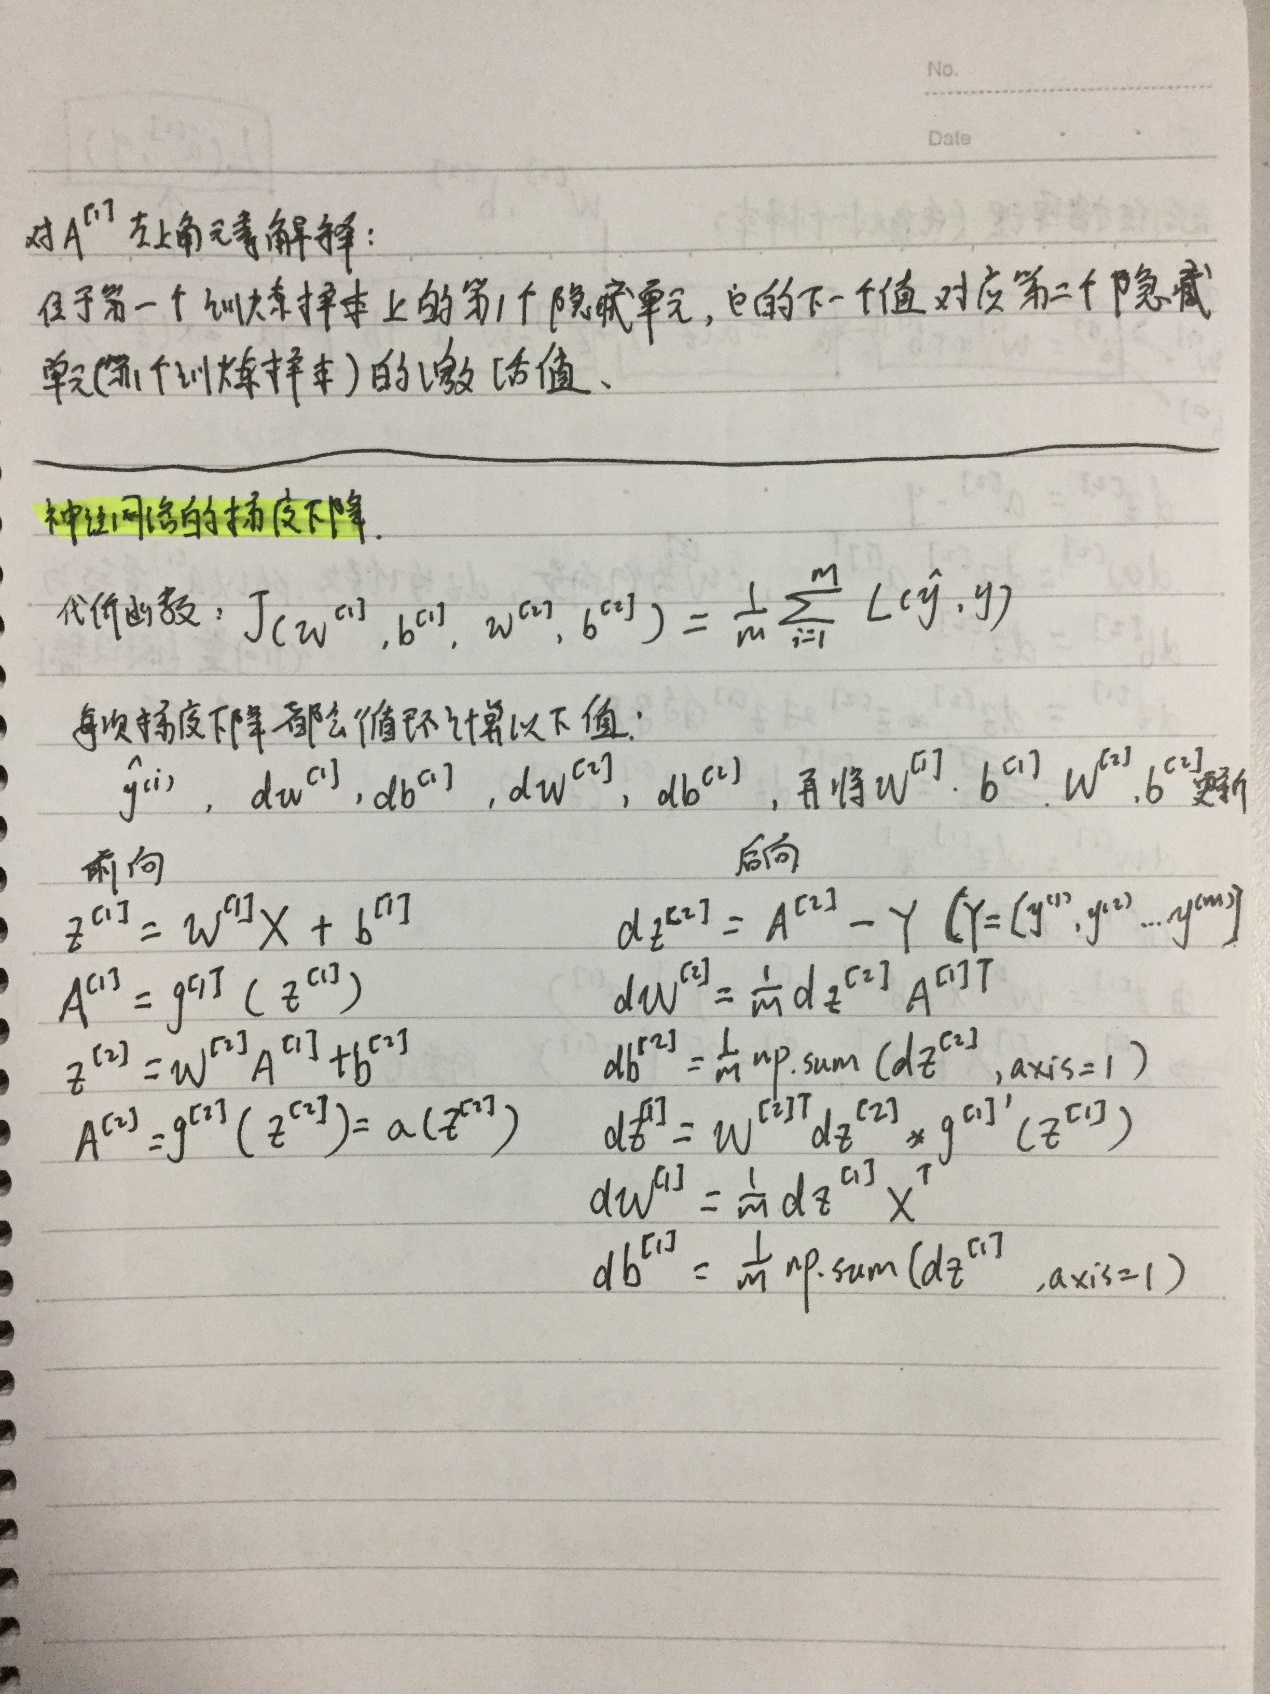 No.
Date
对A^[1] 左上角元素解释:
位于第一个训练样本上的第1个隐藏单元,它的下一个值对应第二个隐藏
单元(第1个训练样本)的激活值、
神经网络的梯度下降.
代价函数: J(w^[1], b^[1], w^[2], b^[2]) = 1/m ∑_{i=1}^{m} L(ŷ, y)
每次梯度下降都会循环计算以下值:
ŷ^(i), dw^[1], db^[1], dw^[2], db^[2], 再将W^[1]. b^[1]. W^[2]. b^[2]更新
前向
z^[1] = W^[1]X + b^[1]
A^[1] = g^[1](z^[1])
z^[2] = W^[2]A^[1] + b^[2]
A^[2] = g^[2](z^[2]) = a(z^[2])
后向
dz^[2] = A^[2] − Y (Y=[y^(1), y^(2) ... y^(m)]
dW^[2] = 1/m dz^[2] A^[1]T
db^[2] = 1/m np.sum(dz^[2], axis=1)
dz^[1] = W^[2]T dz^[2] * g^[1]'(z^[1])
dW^[1] = 1/m dz^[1] X^T
db^[1] = 1/m np.sum(dz^[1], axis=1)